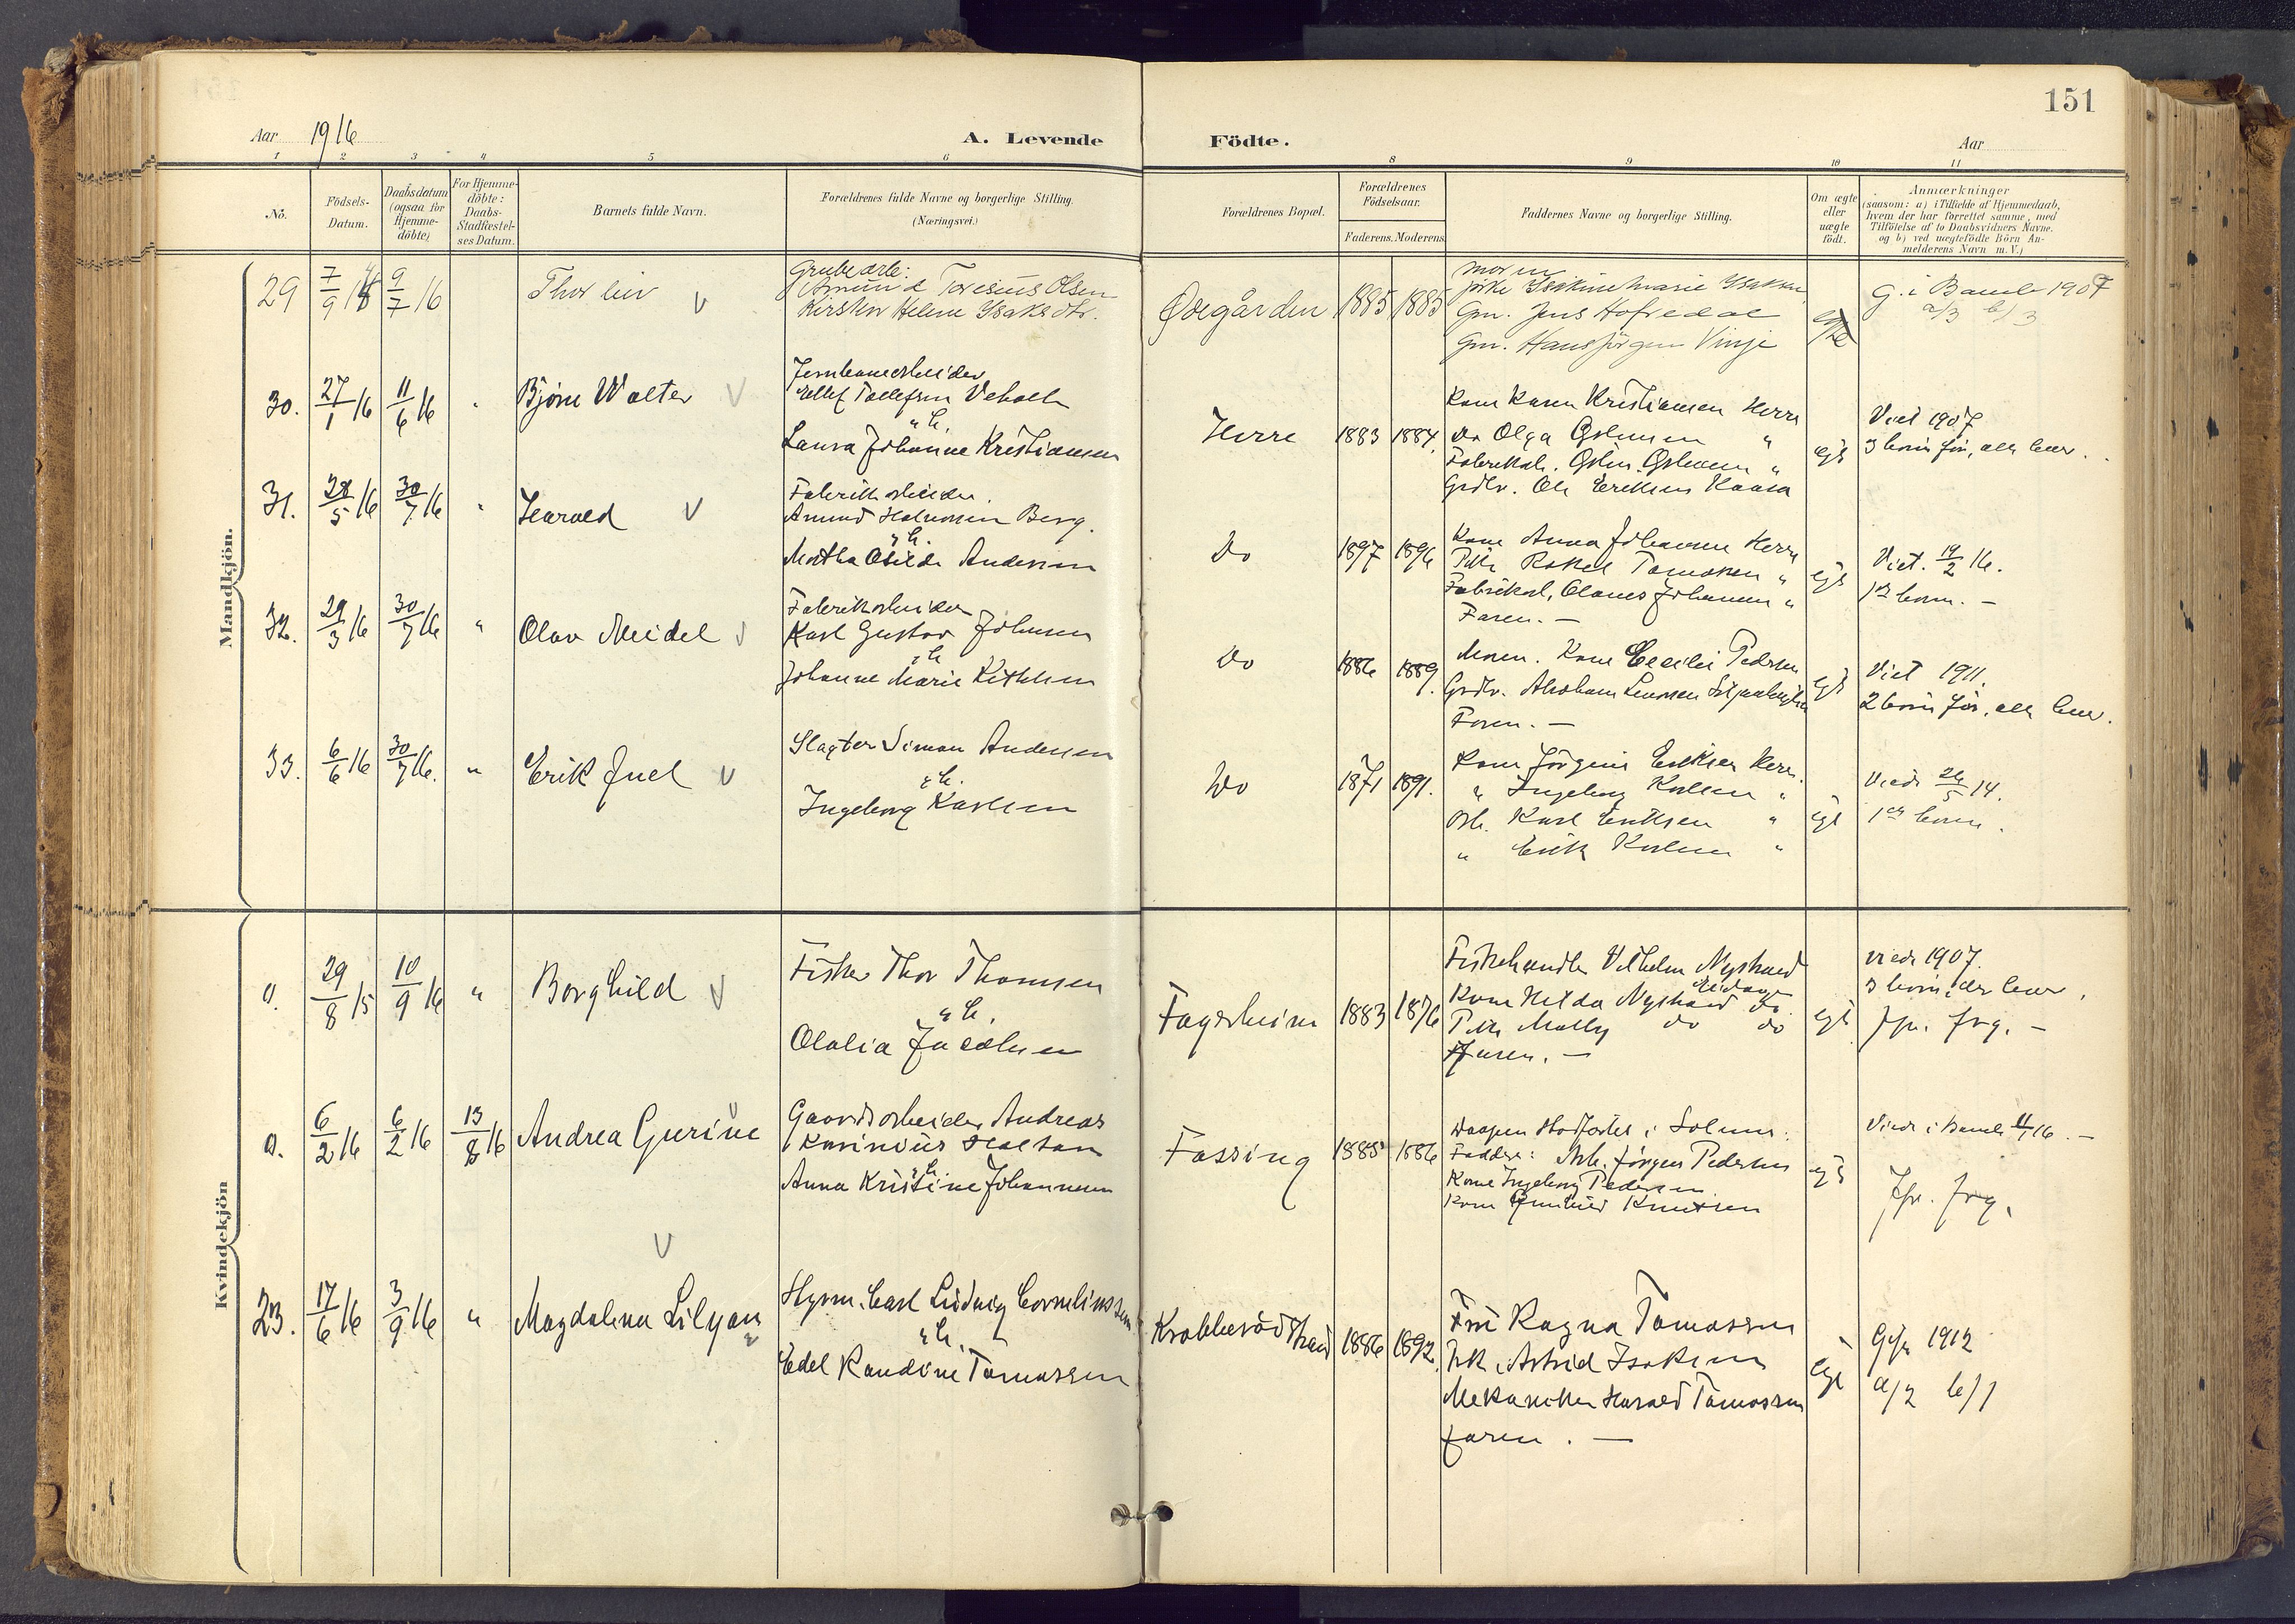 151
Aar 1916
A. Levende Födte.
Aar
1 2 3 4 5 6 8 9 10 11
No.
Födsels-
Datum.
Daabsdatum
(ogsaa for
Hjemme-
döbte)
For Hjemme-
döbte:
Daabs-
Stadfæstel-
ses Datum.
Barnets fulde Navn.
Forældrenes fulde Navne og borgerlige Stilling.
(Næringsvei.)
Forældrenes Bopæl.
Forældrenes
Födselsaar.
Faderens. Moderens
Faddernes Navne og borgerlige Stilling.
Om ægte
eller
uægte
födt.
Anmærkninger
(saasom: a) i Tilfælde af Hjemmedaab,
hvem der har forrettet samme, med
Tilföielse af to Daabsvidners Navne.
og b) ved uægtefödte Börn An-
melderens Navn m. V.)
Mandkjön.
29 7/9 9/7 16
Thorleiv
Grubearb:
Amund Toresius Olsen
Kirsten Helene Ysaksdtr.
Ødegården 1885 1885
moren
Gm. Jens Hofredal
Gm. Hans Jörgen Vinje
G. i Bamle 1907
a/3 b/3
30. 27/1 16 11/6 16
Bjørn Walter
Jernbanearbeider
Ellef Tollefsen
Laura Johanne Kristiansen
Herre 1883 1884.
Kone Karen Kristiansen Herre
Do Olga
Grdbr. Ole Eriksen
egt
Viet 1907
3 born før, alle lever.
31. 28/5 16 30/7 16
Harald
Fabrikarbeider.
Amund Halvorsen Berg.
Martha Otilde Andersen
Do 1897 1896
Kone Anna Johansen Herre
Pike Rakel Tomasen "
Fabrikarb. Olaves Johansen "
Faren. —
egt
Viet. 19/2 16.
1ste born. —
32. 29/3 16 30/7 16 "
Olav Meidel
Fabrikarbeider
Karl Gustav Johnsen
Johanne Marie
Do 1886 1889.
Moren. Kone Cecilie Pedersen
Grdbr. Abraham
Faren. —
egt
Viet 1911.
2 born før, alle lever.
33. 6/6 16 30/7 16. "
Erik Juel
Slagter Simon Andersen
Ingeborg Karlsen
Do 1871 1891.
Kone Jörgine Eriksen Herre.
" Ingeborg Karlsen "
Arb. Karl Eriksen "
" Erik Karlsen "
egt
Viede 26/5 14.
1ste born.
Kvindekjön
a. 29/8 15 10/9 16 "
Borghild
Fisker Thor Thomsen
Olalia Jacobsen
Fagerheim 1883 1876
Fiskehandler Vilhelm Nystrand
Eidanger
Kone Hilda Nystrand do
Pike Molly do do
Faren. —
egt
viede 1907.
3 born, lever.
a. 6/2 16 6/2 16 13/8 16
Andrea Gurine
Gaardsarbeider Andreas
Karinius
Anna Kristine Johannesen
Fossing 1885 1886
Daapen stadfæstet i Solum:
Faddere: Arb. Jörgen Pedersen
Kone Ingeborg Pedersen
Kone Gunhild Knutsen
egt
Viede i Bamle
23. 17/6 16 3/9 16 "
Magdalena Lilyan
Styrm. Carl Ludvig Corneliussen
Edel Randine Tomassen
Krabberødstrand 1886 1892.
Fru Ragna Tomassen
Frk. Astrid Isaksen
Mekaniker Harald Tomassen
faren. —
egt
Gift 1912
a/2 b/1